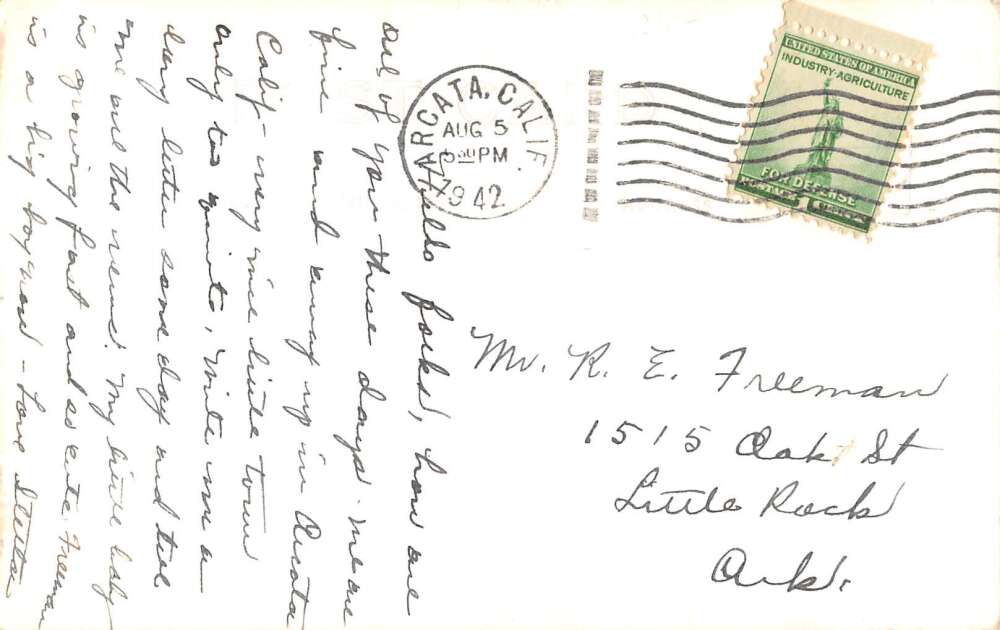 Hello folks, how are
all of you these days? We are
fine and away up in Arcata
Calif - very nice little town
only too quite, Write me a
long letter some day and tell
me all the news. My little baby
is growing fast and as cute. Freeman
is a big boy now - Love Stella
ARCATA, CALIF.
AUG 5
PM
1942
UNITED STATES OF AMERICA
INDUSTRY · AGRICULTURE
FOR DEFENSE
Mr. R. E. Freeman
1515 Oak St
Little Rock
Ark.